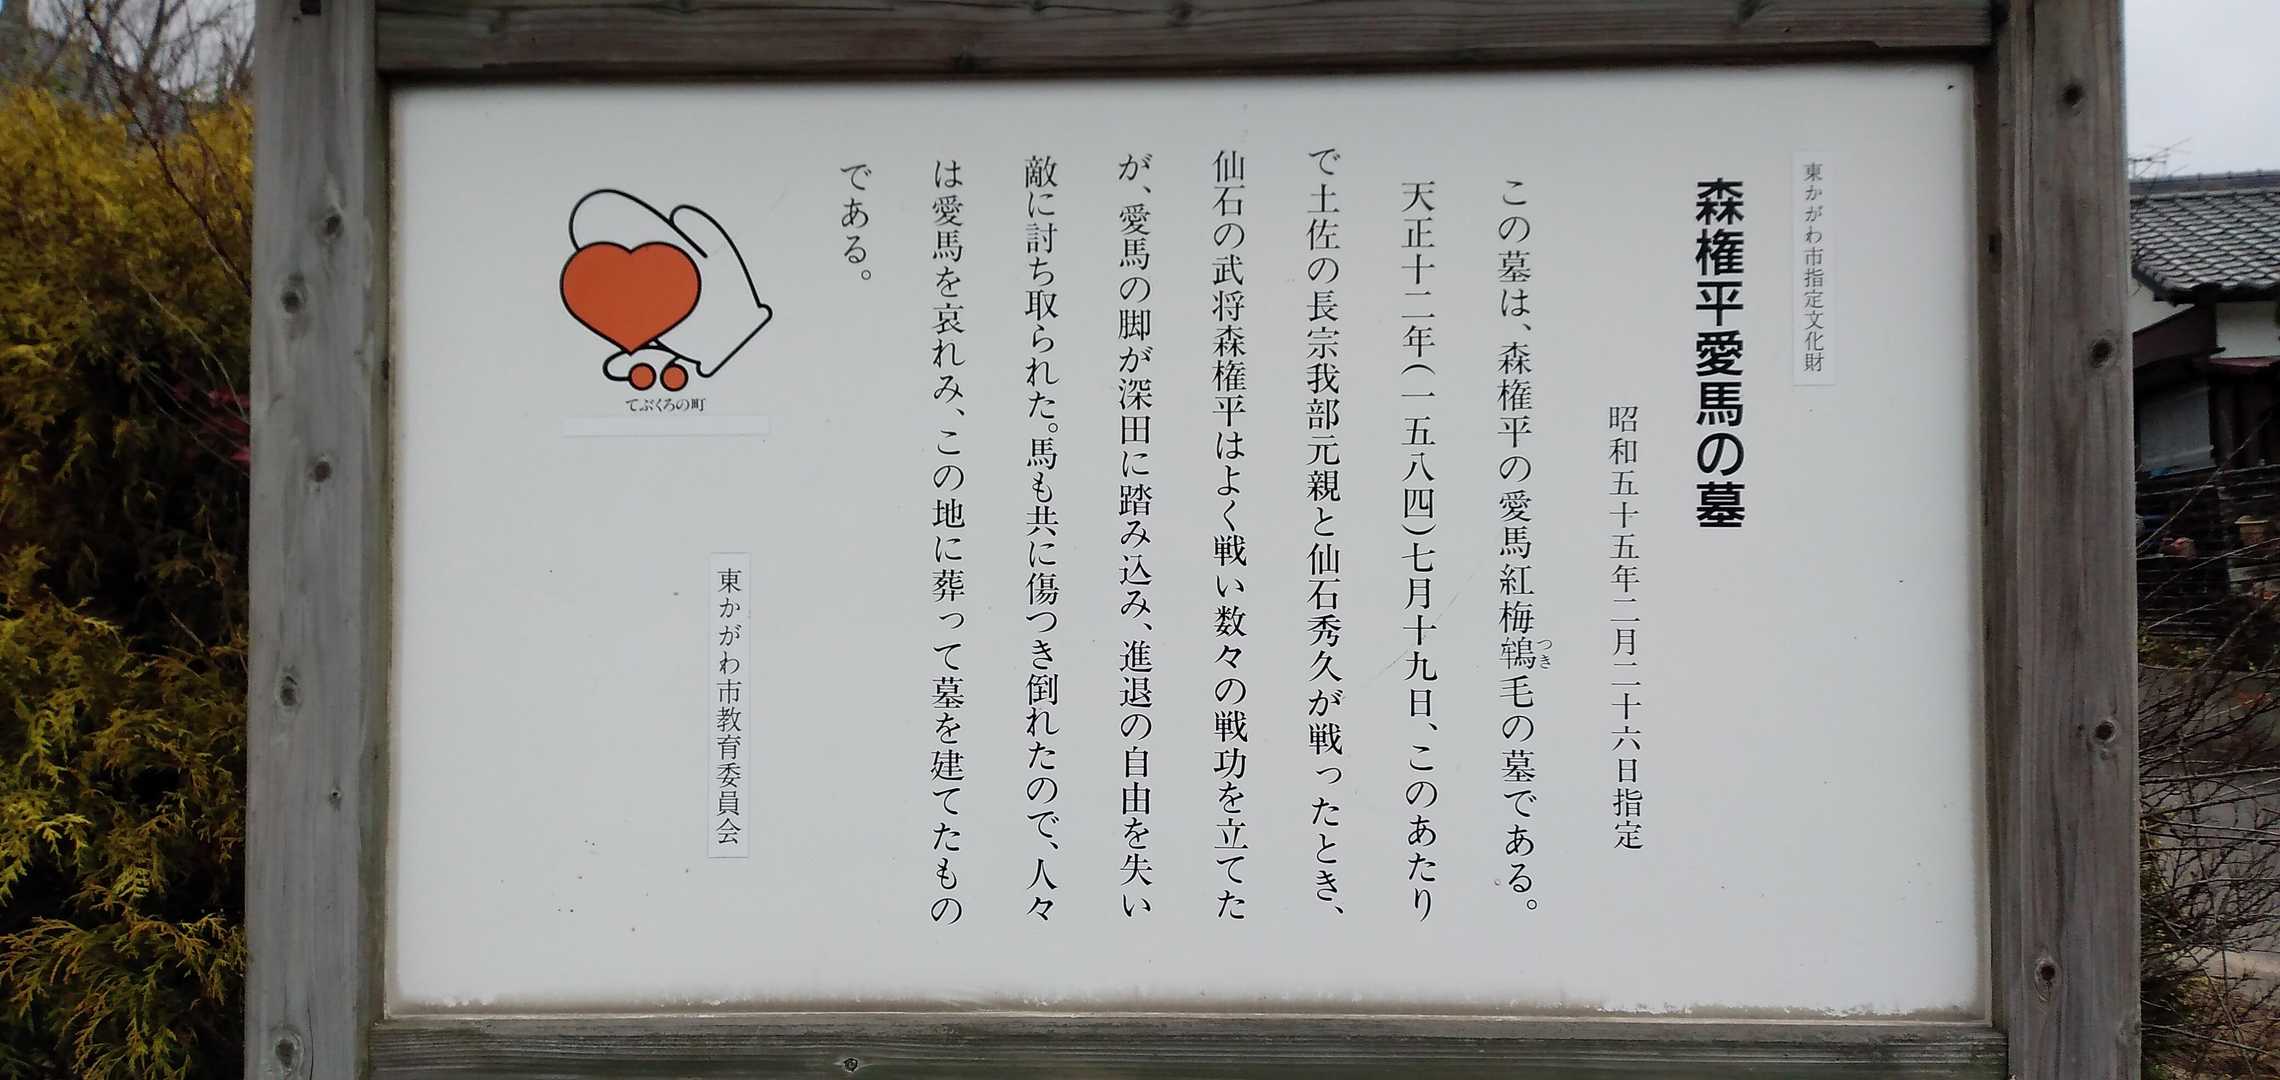 東かがわ市指定文化財
森権平愛馬の墓
昭和五十五年二月二十六日指定
この墓は、森権平の愛馬紅梅鴾毛の墓である。
つき
天正十二年(一五八四)七月十九日、このあたり
で土佐の長宗我部元親と仙石秀久が戦ったとき、
仙石の武将森権平はよく戦い数々の戦功を立てた
が、愛馬の脚が深田に踏み込み、進退の自由を失い
敵に討ち取られた。馬も共に傷つき倒れたので、人々
は愛馬を哀れみ、この地に葬って墓を建てたもの
である。
東かがわ市教育委員会
てぶくろの町